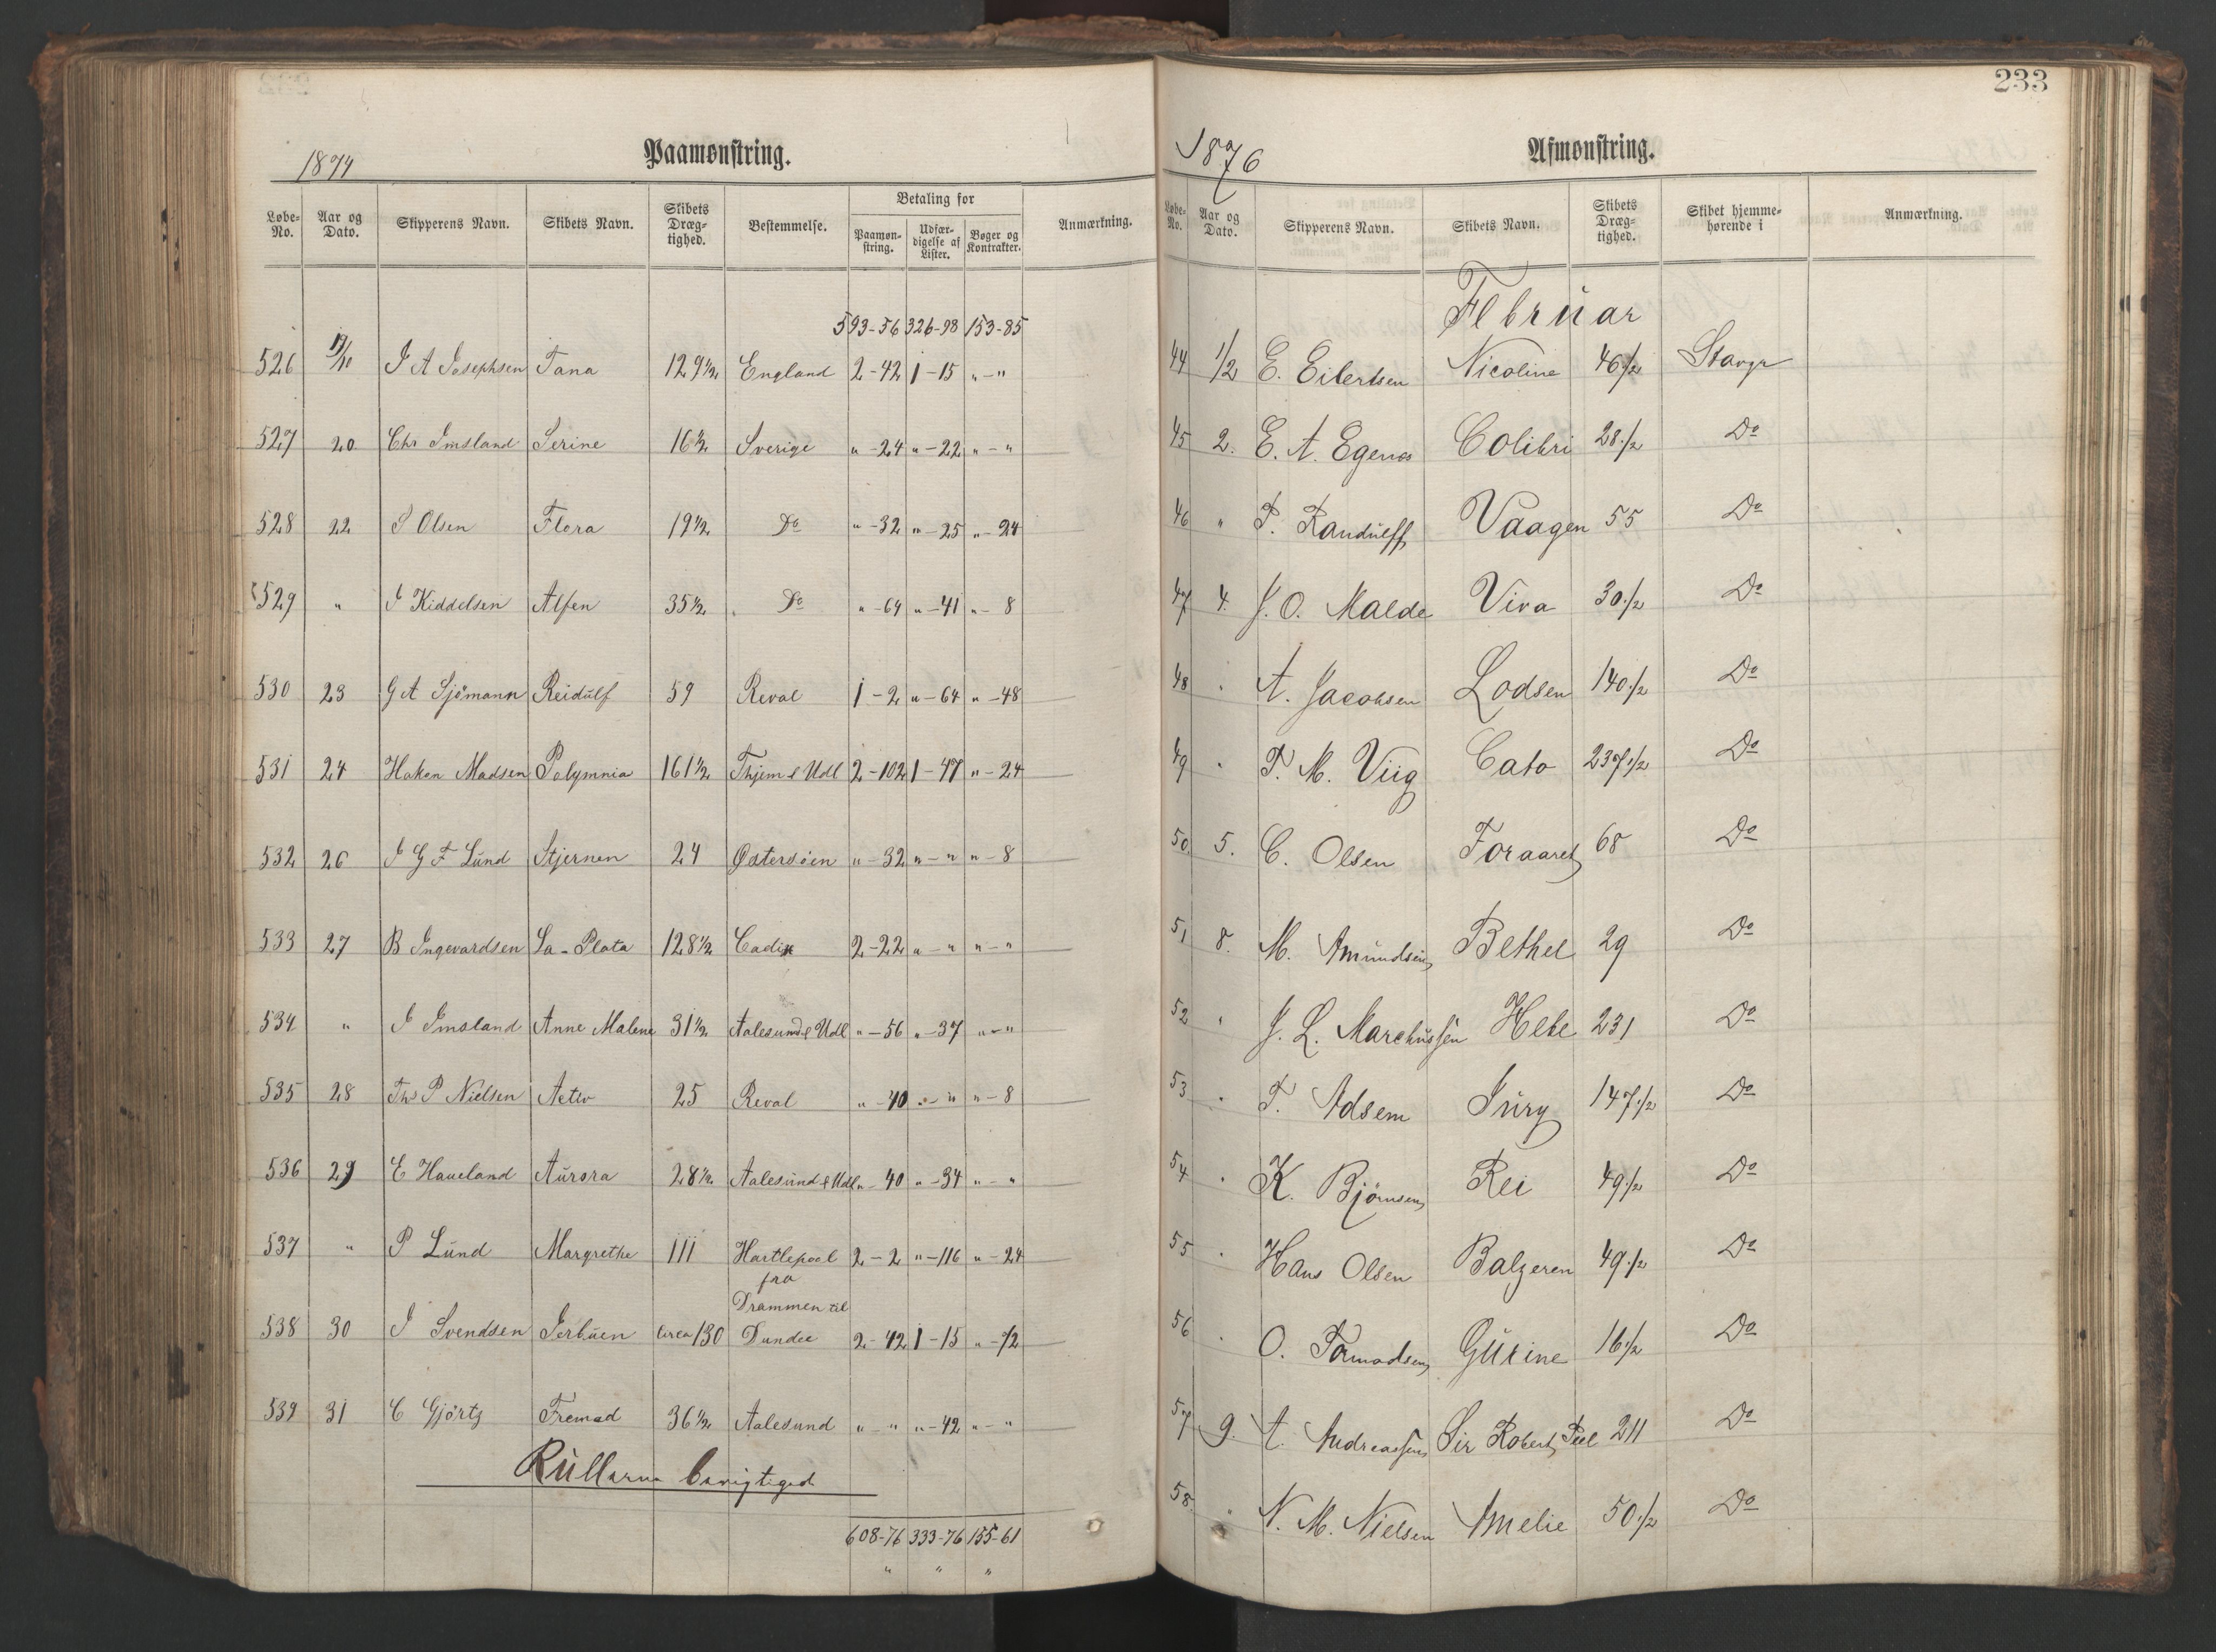 1874
Paamønstring.
Løbe-No. Aar og Dato. Skipperens Navn. Skibets Navn. Skibets Dræg-tighed. Bestemmelse. Betaling for Paamøn-string. Udfær-digelse af Lister. Bøger og Kontrakter. Anmærkning.
593-56 326-98 153-85
526 19/10 J A Josephsen Tana 129 1/2 England 2-42 1-15 "-"
527 20 Chr Imsland Serine 16 1/2 Sverige "-24 "-22 "-"
528 22 S Olsen Flora 19 1/2 Do "-32 "-25 "-24
529 " J Kiddelsen Alfen 35 1/2 Do "-64 "-41 "-8
530 23 G A Sjömann Reidulf 59 Reval 1-2 "-64 "-48
531 24 Hakon Madsen Polymnia 161 1/2 Thjem & Udl 2-102 1-47 "-24
532 26 J G F Lund Stjernen 24 Østersøen "-32 "-" "-8
533 27 B Ingevardsen La-Plata 128 1/2 Cadix 2-22 "-" "-"
534 " J Imsland Anne Malene 31 1/2 Aalesund & Udl "-56 "-37 "-"
535 28 Ths P Nielsen Activ 25 Reval "-40 "-" "-8
536 29 E Haveland Aurora 28 1/2 Aalesund & Udl "-40 "-34 "-"
537 " P Lund Margrethe 111 Hartlepool 2-2 "-116 "-24
fra
Drammen til
538 30 J Svendsen Jerbuen circa 130 Dundee 2-42 1-15 "-72
539 31 C Gjörtz Fremad 36 1/2 Aalesund "-" "-42 "-"
Rullerne berigtiged
608-76 333-76 155-61
" " "
233
1876
Afmønstring.
Løbe-No. Aar og Dato. Skipperens Navn. Skibets Navn. Skibets Dræg-tighed. Skibet hjemme-hørende i Anmærkning.
Februar
44 1/2 E. Eilertsen Nicoline 46 1/2 Stavgr
45 2. E. A. Egenes Colibri 28 1/2 Do
46 " T. Randulff Vaagen 55 Do
47 4. J. O. Malde Viva 30 1/2 Do
48 " A. Jacobsen Lodsen 140 1/2 Do
49 " T. M. Viig Cato 237 1/2 Do
50 5. C. Olsen Foraaret 68 Do
51 8. M. Amundsen Bethel 29 Do
52 " J. L. Marchussen Hebe 231 Do
53 " T. Adsem Jury 147 1/2 Do
54 " K. Björnsen Rei 49 1/2 Do
55 " Hans Olsen Balzeren 49 1/2 Do
56 " O. Tormodsen Gurine 16 1/2 Do
57 9. A. Andreassen Sir Robert Peel 211 Do
58. " N. M. Nielsen Amelie 50 1/2 Do